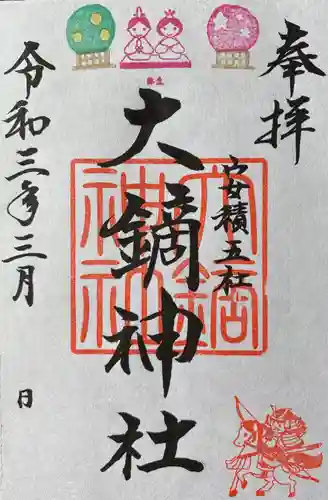 奉拝
安積五社
大鏑神社
令和三年三月
日
弥生
大鏑
神社